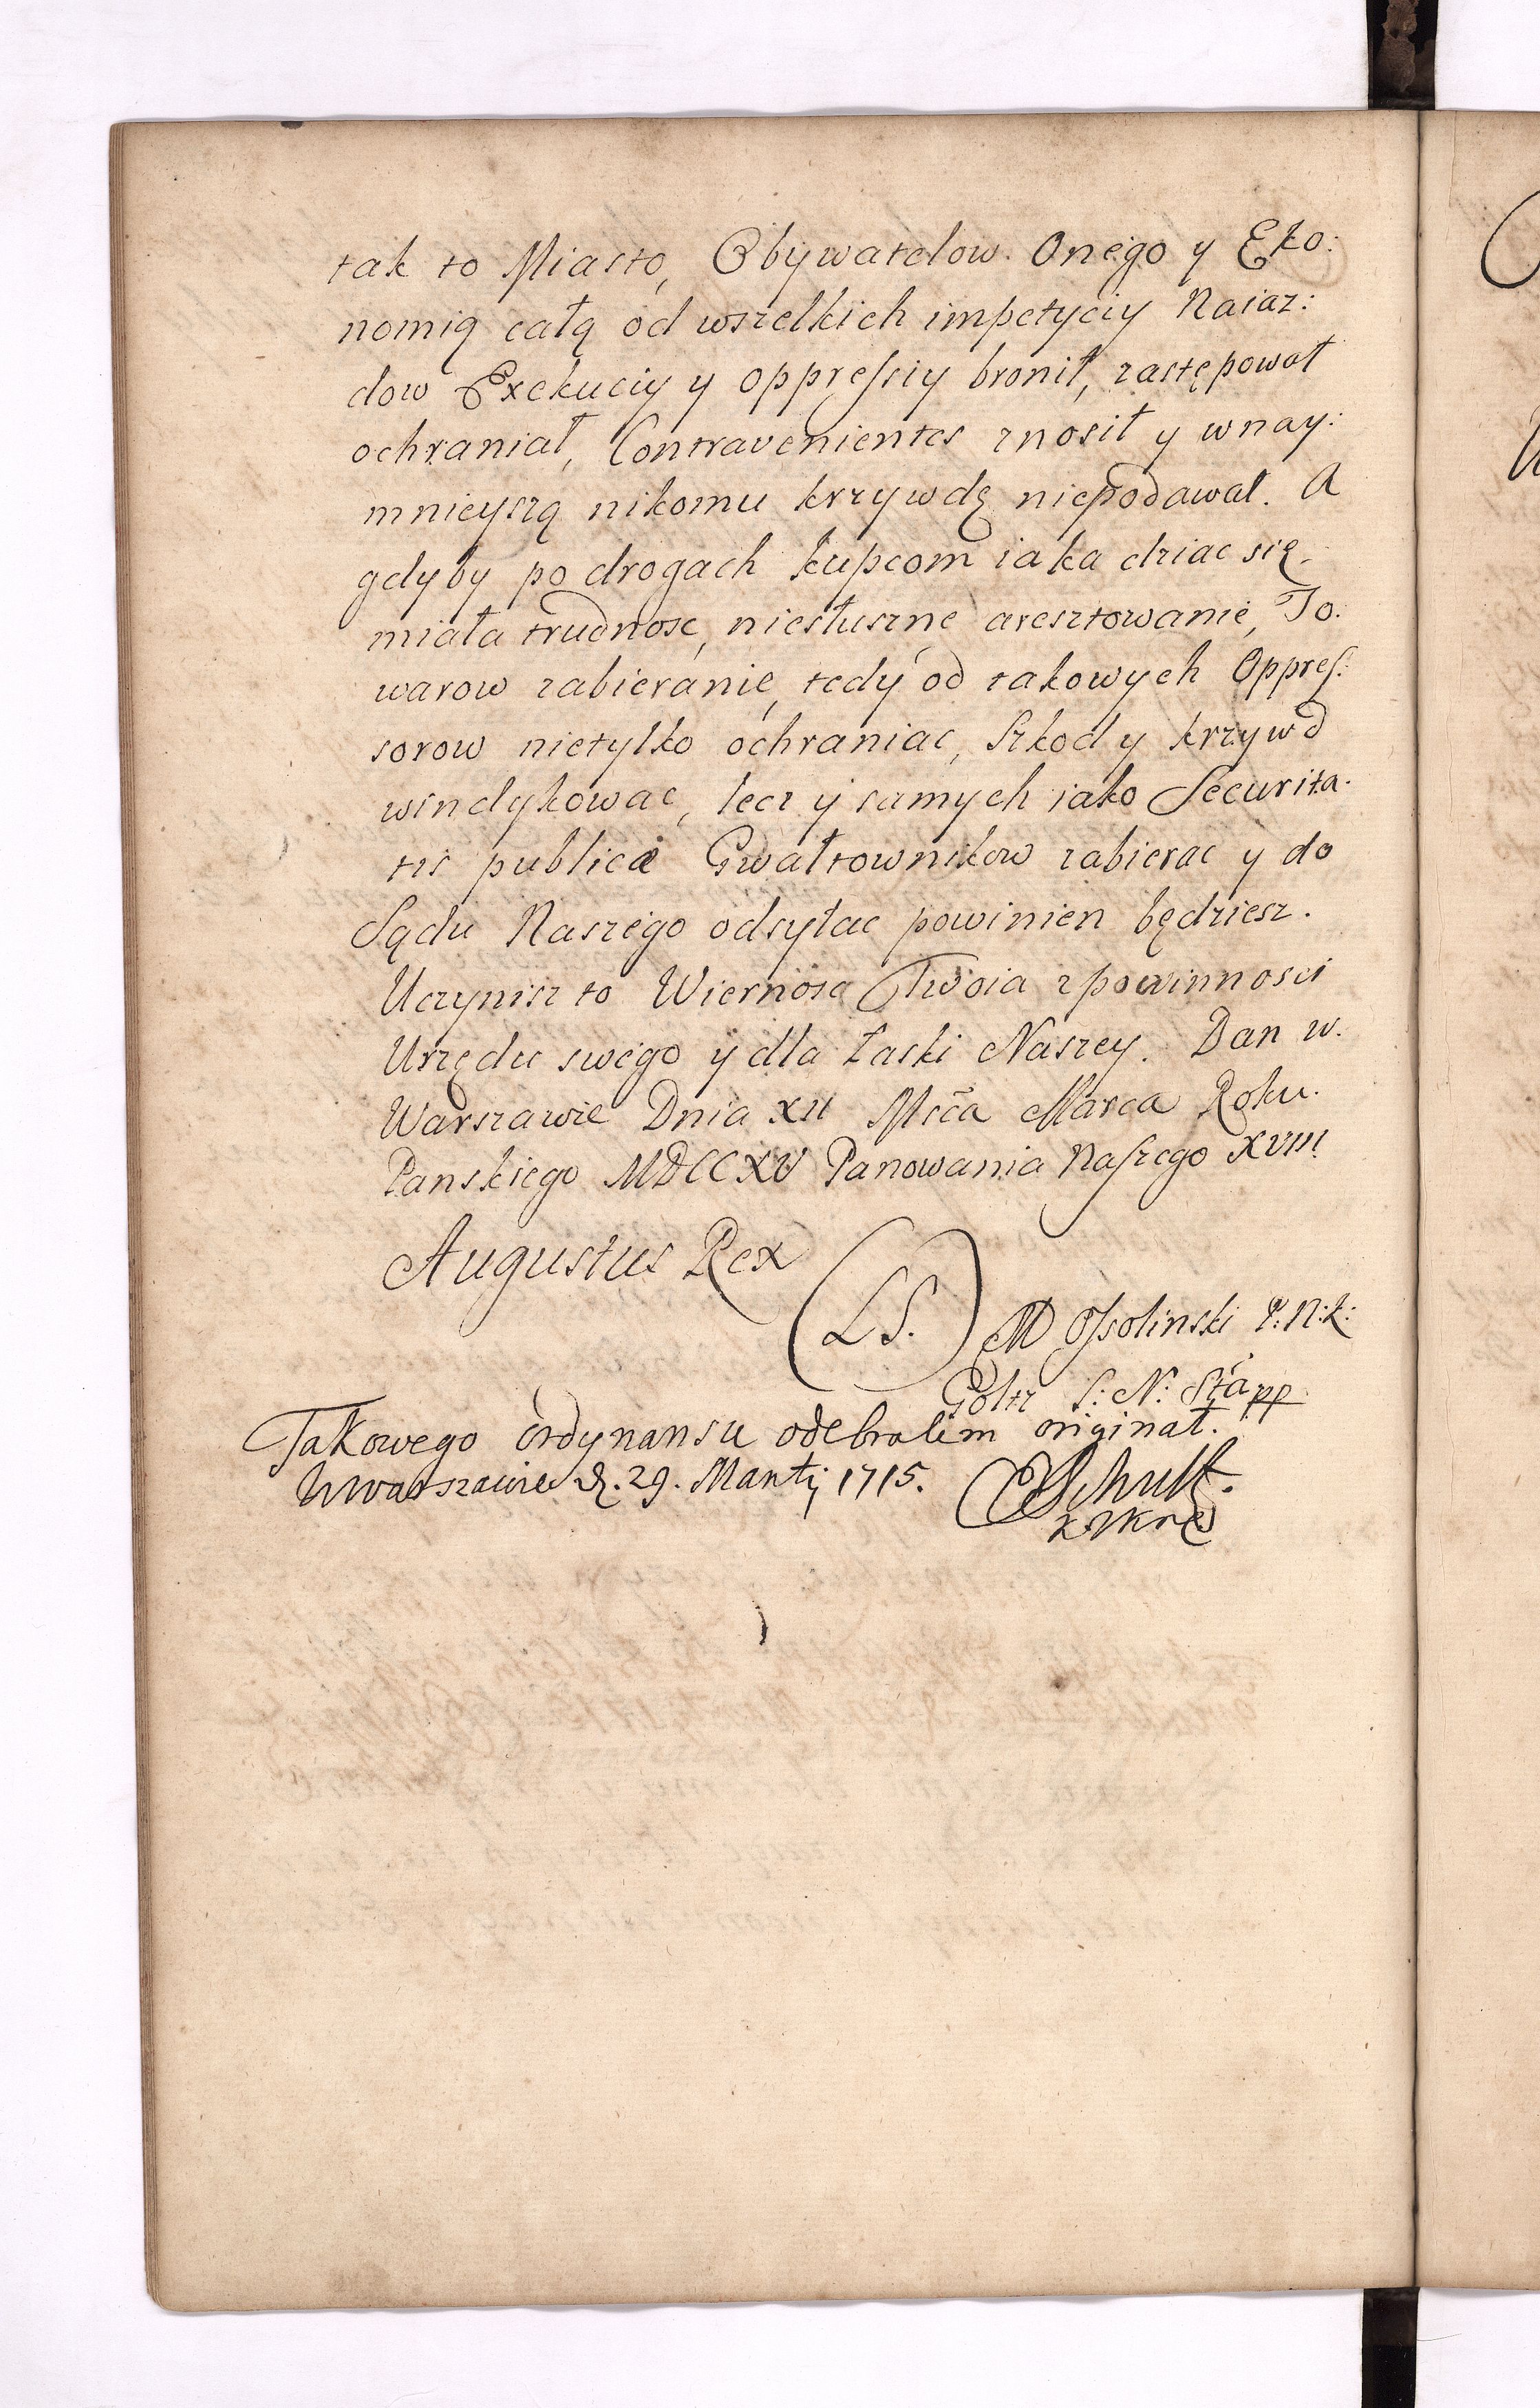 tak to Miasto, Obywatelow Onego y Eko:
nomią całą od wszelkich impetyciy Naiaz:
dow Exekuciy y oppressiy bronił, zastępował
ochraniał, Contravenientes znosił y wnay:
mnieyszą nikomu krzywdę niepodawał. A
gdyby po drogach kupcom iaka dziac się
miała trudnosc, niesłuszne aresztowanie, To:
warow zabieranie, tedy od takowych Oppres:
sorow nietylko ochraniac, Szkod y krzywd
windykowac, lecz y samych iako Securita:
tis publicæ Gwałtownikow zabierac y do
Sądu Naszego odsyłac powinien będziesz.
Uczynisz to Wiernosc Twoia z powinnosci
Urzędu swego y dla Łaski Naszey. Dan w.
Warszawie Dnia XII Msca Marca Roku.
Panskiego MDCCXV Panowania Naszego XVIII
Augustus Rex
(LS.) M Ossolinski P: N: K:
S: N:
Takowego ordynansu odebralem originał.
W Warszawie d. 29. Martij 1715. Schultz.